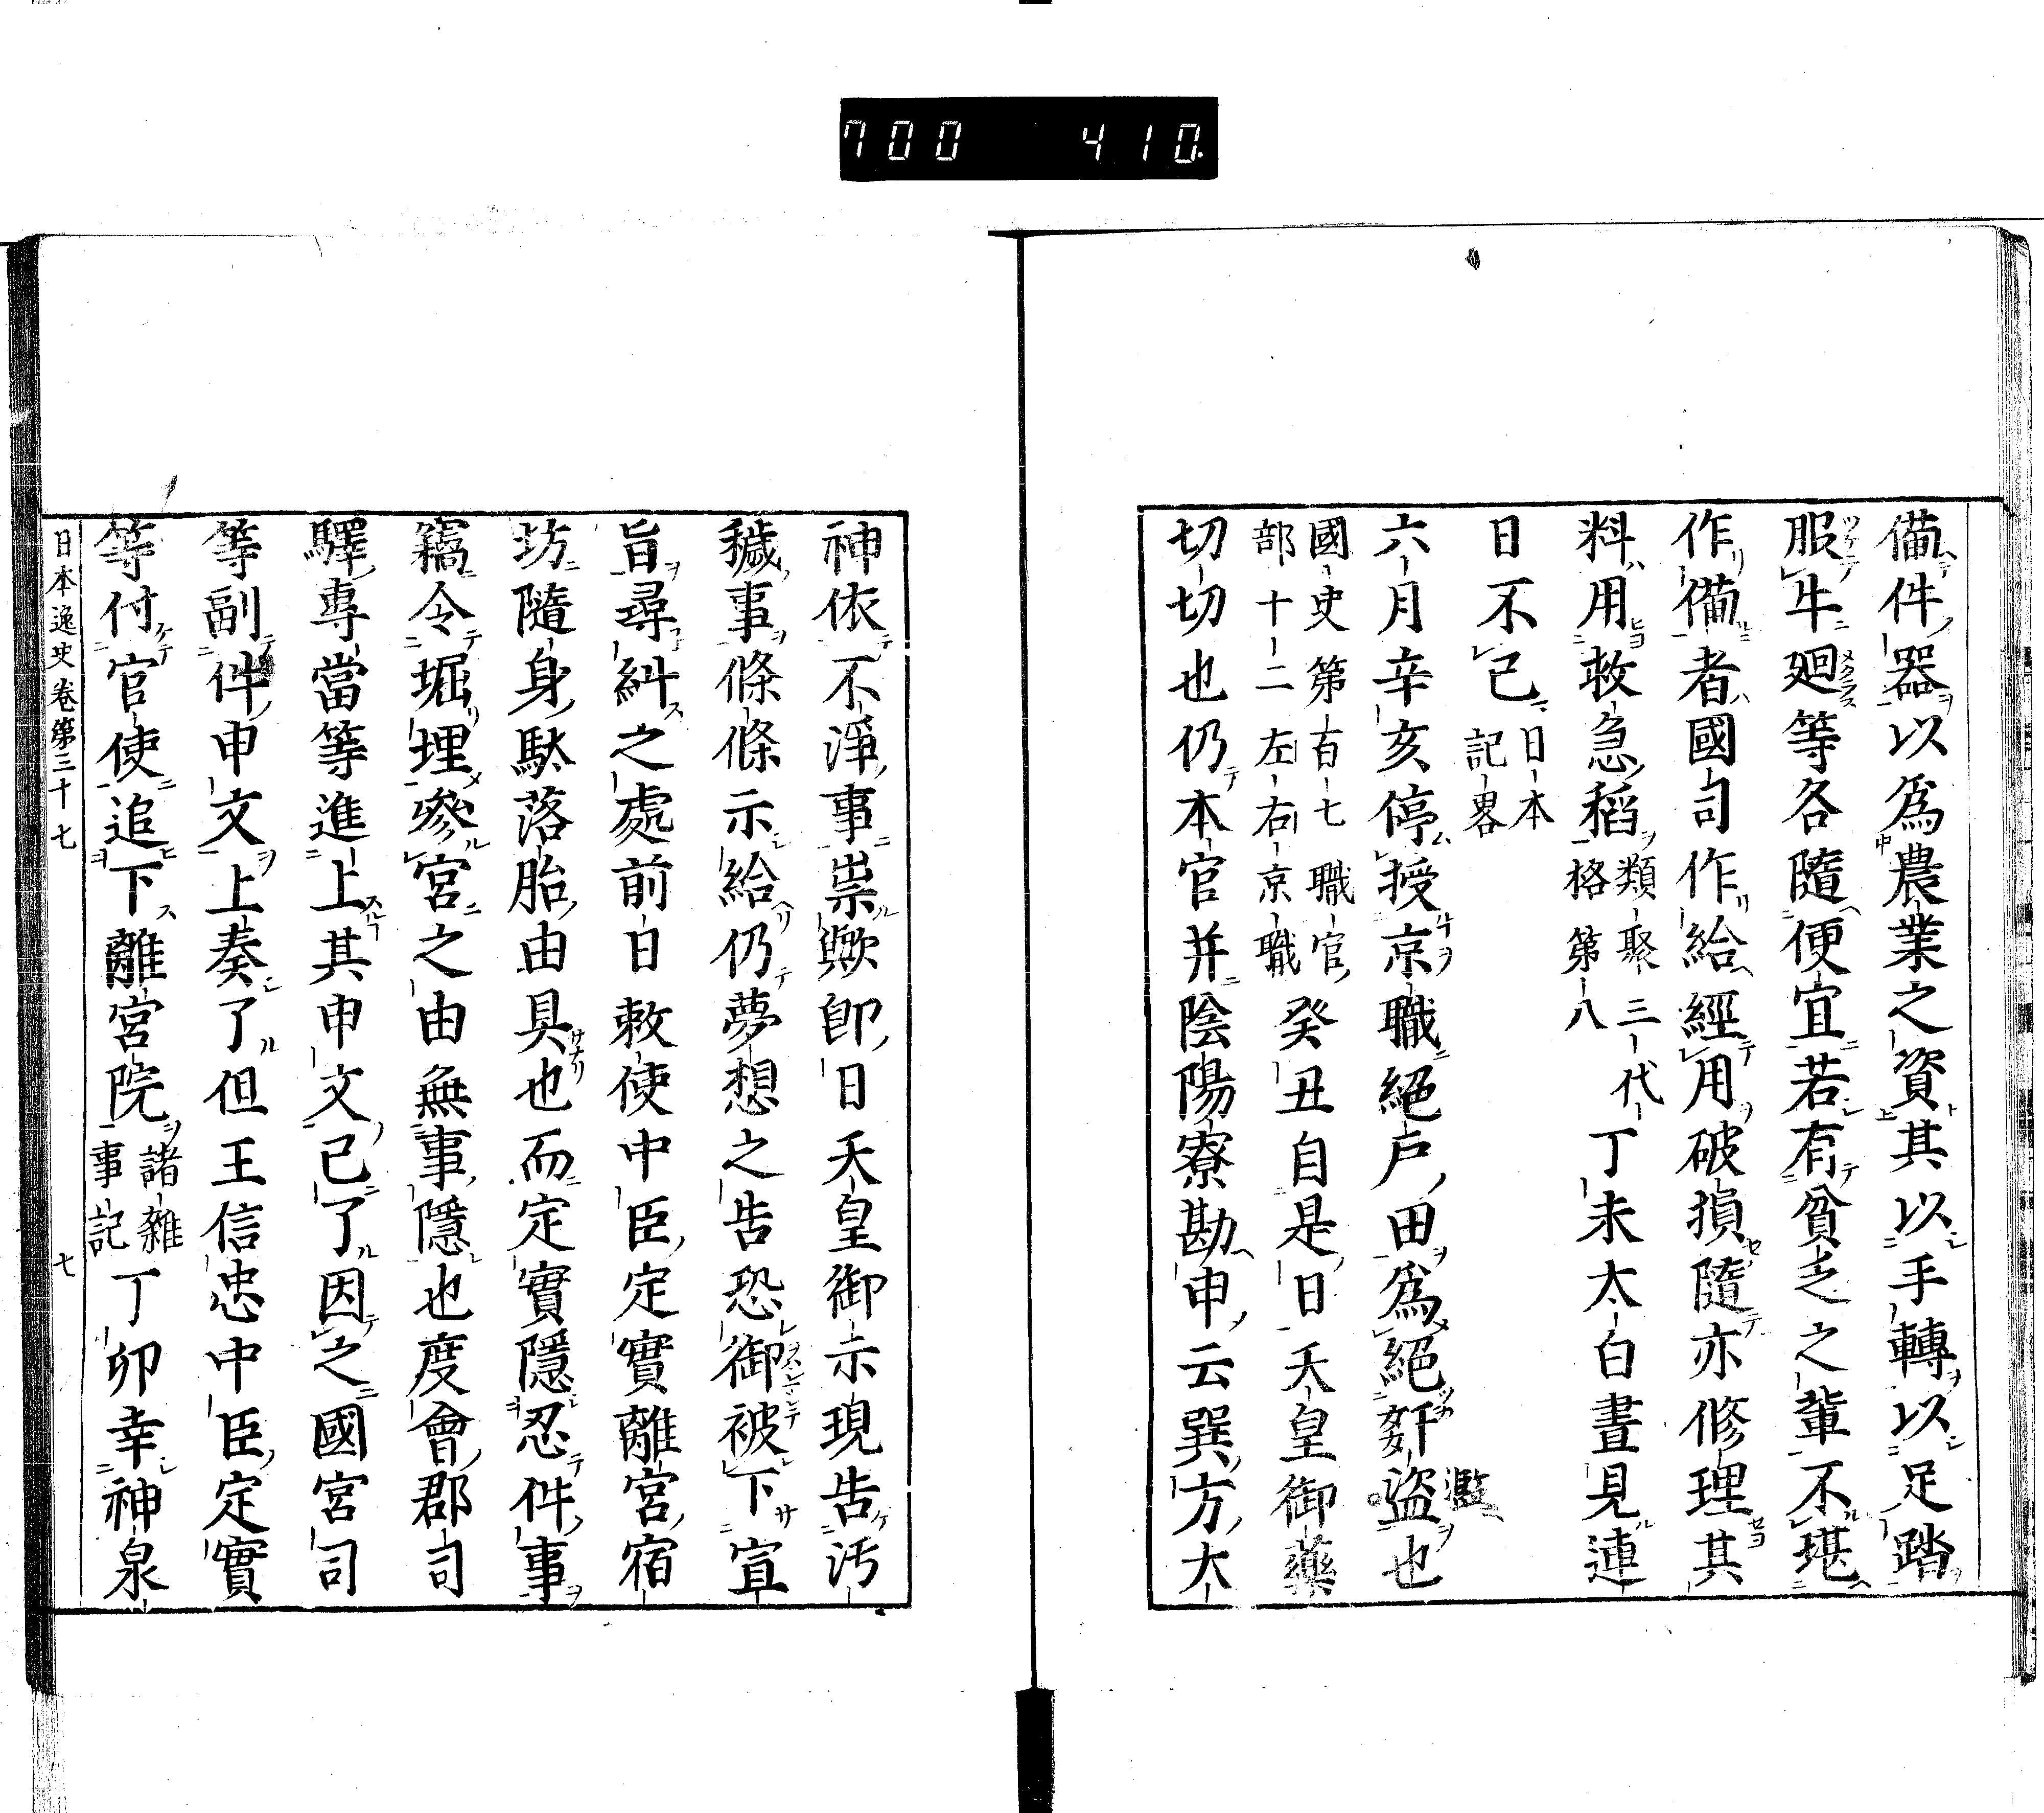 700 410
備件器以爲農業之資其以手轉以足踏
服牛廻等各隨便宜若有貧乏之輩不堪
作備者國司作給經用破損隨亦修理其
料用救急稻類聚三代格第八丁未太白晝見連
日不已日本記畧
六月辛亥停授京職絕戶田爲絕姧盜也
濫
國史第百七職官部十二左右京職癸丑自是日天皇御藥
切切也仍本官并陰陽寮勘申云巽方大
神依不淨事祟歟卽日天皇御示現告汚
穢事條條示給仍夢想之告恐御被下宣
旨尋糾之處前日敕使中臣定實離宮宿
坊隨身駄落胎由具也而定實隱忍件事
竊令堀埋參宮之由無事隱也度會郡司
驛專當等進上其申文已了因之國宮司
等副件申文上奏了但王信忠中臣定實
等付官使追下離宮院諸雜事記丁卯幸神泉
日本逸史卷第三十七 七